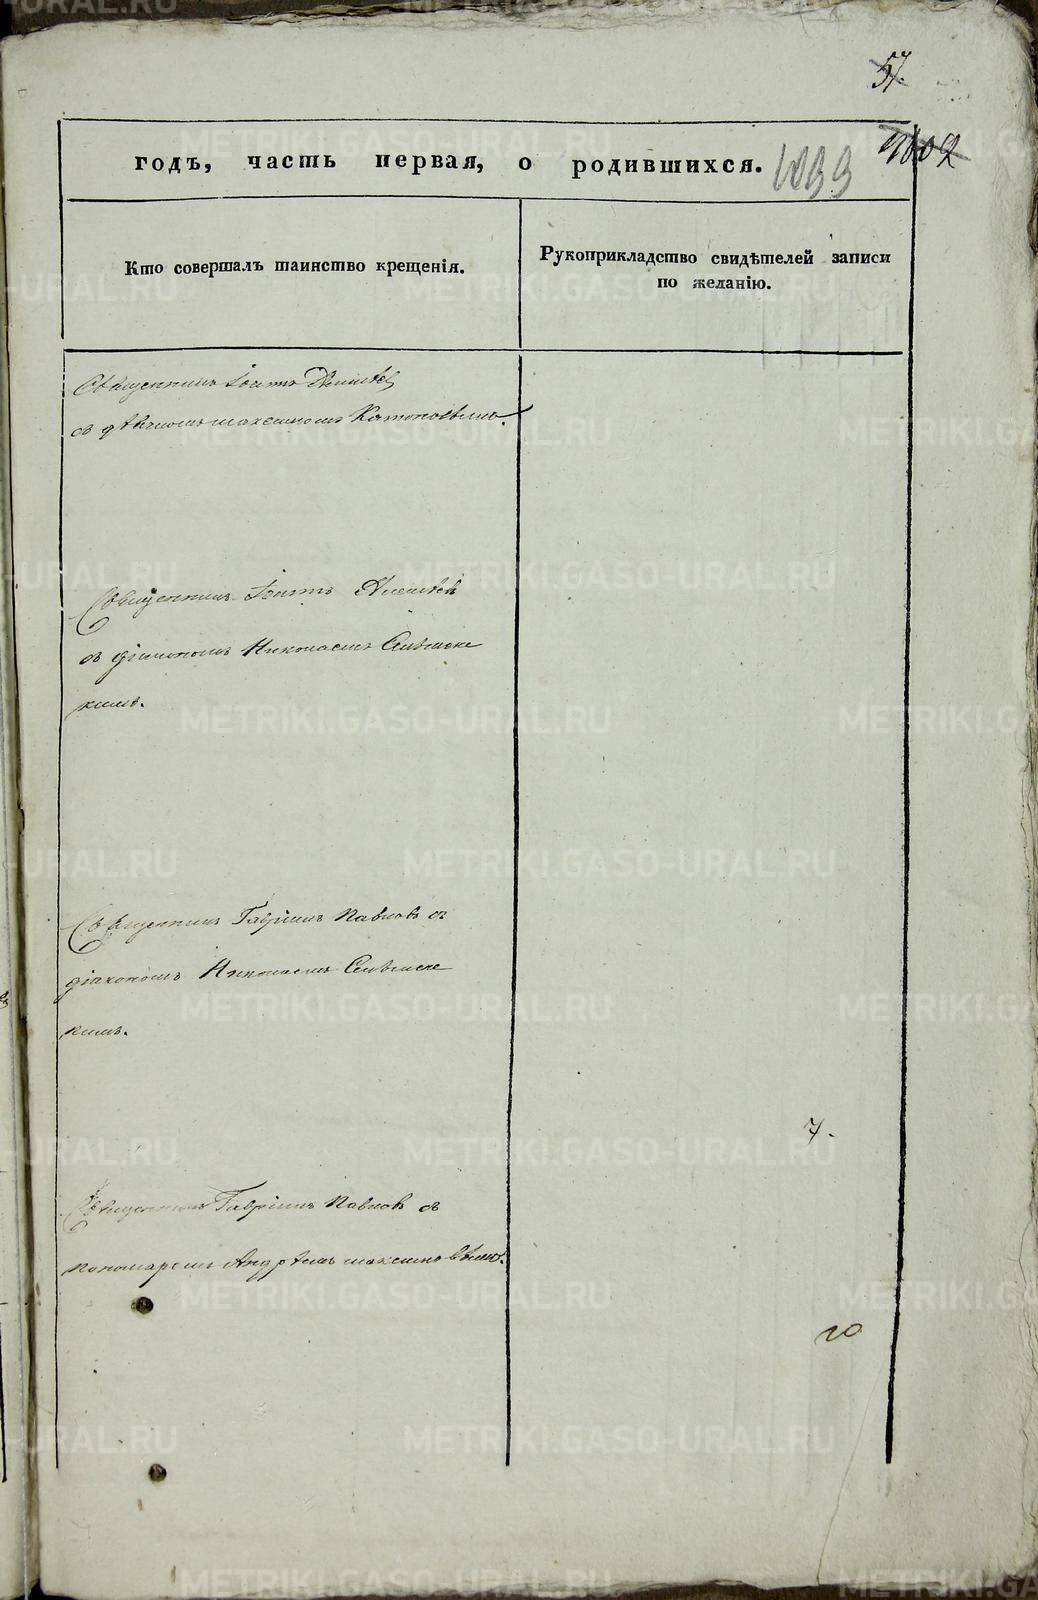 57.
1002
годъ, часть первая, о родившихся.
1033
Кто совершалъ таинство крещенія.
Рукоприкладство свидѣтелей записи
по желанію.
Священникъ Іоаннъ Алексѣев
съ дьячкомъ
Священникъ Іоаннъ Алексѣевъ
съ діакономъ Николаемъ Сивилле
кимъ.
Священникъ Гавріилъ Павловъ съ
діакономъ Николаемъ
кимъ.
7.
Священникъ Гавріилъ Павловъ съ
пономаремъ Андреемъ Максимовымъ.
10
METRIKI.GASO-URAL.RU